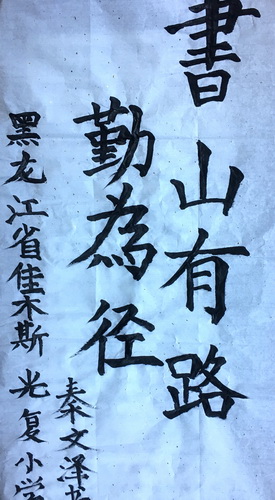 書山有路
勤為径
黑龙江省佳木斯光复小学
秦文泽书